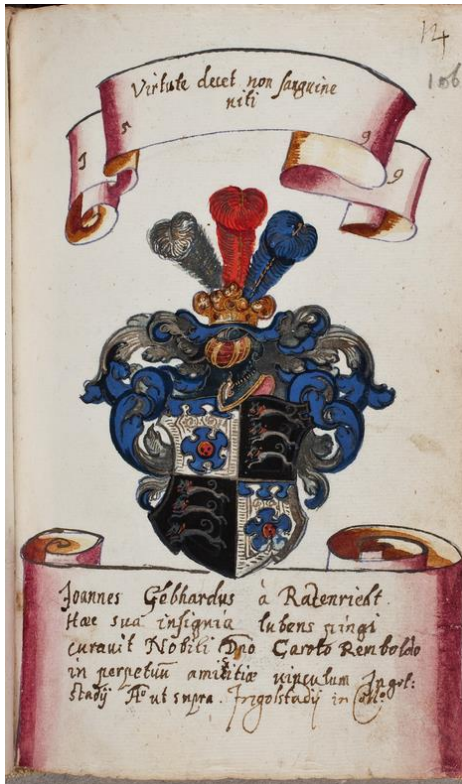 124
106
Virtute decet non sanguine
niti
1 5 9 9
Joannes Gebhardus à Razenriebt.
Hæc sua insignia lubens pingi
curavit Nobili Dno Carolo Remboldo
in perpetuū amicitiæ vinculum Ingol=
stadij A͞o ut supra. Ingolstadij in